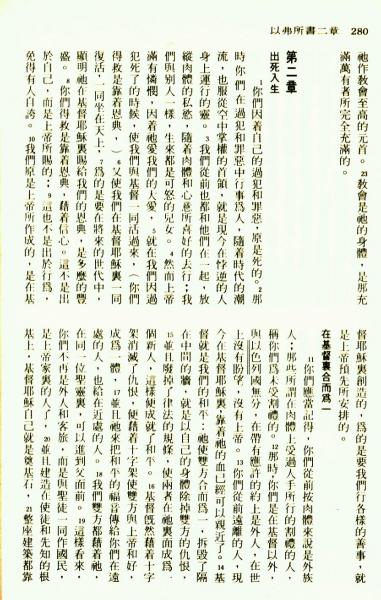 以弗所書二章 280
祂作教會至高的元首。23教會是祂的身體，是那充
滿萬有者所完全充滿的。
第二章
出死入生
1你們因着自己的過犯和罪惡，原是死的。2那
時你們在過犯和罪惡中行事為人，隨着時代的潮
流，也服從空中掌權的首領，就是現今在悖逆的人
身上運行的靈。3我們從前也都和他們在一起，放
縱肉體的私慾，隨着肉體和心意所喜好的去行；我
們與別人一樣，生來都是可怒的兒女。4然而上帝
滿有憐憫，因着祂愛我們的大愛，5就在我們因過
犯死了的時候，使我們與基督一同活過來，（你們
得救是靠着恩典，）6又使我們在基督耶穌裏一同
復活，一同坐在天上，7為的是要在將來的世代中，
顯明祂在基督耶穌裏賜給我們的恩典，是多麼的豐
盛。8你們得救是靠着恩典，藉着信心。這不是出
於自己，而是上帝所賜的；9這也不是出於行為，
免得有人自誇。10我們原是上帝所作成的，是在基
督耶穌裏創造的，為的是要我們行各樣的善事，就
是上帝預先所安排的。
在基督裏合而為一
11你們應當記得，你們從前按肉體來說是外族
人；那些所謂在肉體上受過人手所行的割禮的人，
稱你們為未受割禮的。12那時，你們是在基督以外，
與以色列國無分，在帶有應許的約上是外人，在世
上沒有盼望，沒有上帝。13你們從前遠離的人，現
今在基督耶穌裏，靠着祂的血已經可以親近了。14基
督就是我們的和平：祂使雙方合而為一，拆毀了隔
在中間的牆，就是以自己的身體除掉雙方的仇恨，
15並且廢掉了律法的規條，使兩者在祂裏面成為一
個新人，這樣便成就了和平。16基督旣然藉着十字
架消滅了仇恨，便藉着十字架使雙方與上帝和好，
成為一體，17並且祂來把和平的福音傳給你們在遠
處的人，也給在近處的人。18我們雙方都藉着祂，
在同一位聖靈裏，可以進到父面前。19這樣看來，
你們不再是外人和客旅，而是與聖徒一同作國民，
是上帝家裏的人了，20並且建造在使徒和先知的根
基上，基督耶穌自己就是奠基石，21整座建築都靠